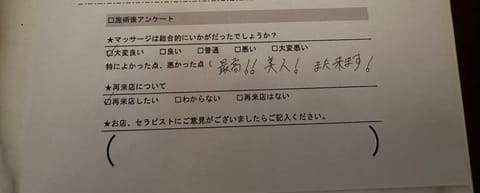 □施術後アンケート
★マッサージは総合的にいかがだったでしょうか？
☑大変良い □良い □普通 □悪い □大変悪い
特によかった点、悪かった点（ 最高!! 美人! また来ます!
★再来店について
☑再来店したい □わからない □再来店はない
★お店、セラピストにご意見がございましたらご記入ください。
( )